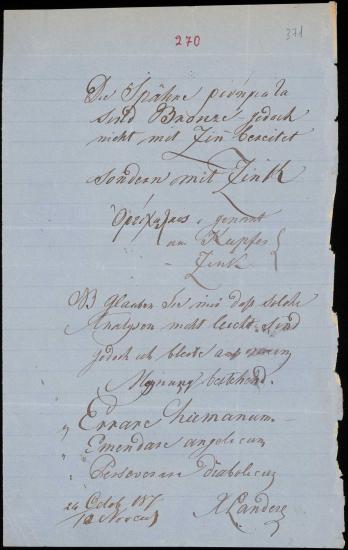 270
371
Die Spähne ρινήματα
sind Bronze - jedoch
nicht mit Zin - bereitet
sondern mit Zink
Ὀρείχαλκος, genant
aus Kupfer
Zink
Glauben Sie mir daß solche
Analysen nicht leicht sind
jedoch ich bleibe auf meine
Meinung bestehend.
Errare humanum -
Emendare angelicum
Perseverare Diabolicum
24 Octob 187
X Landerer